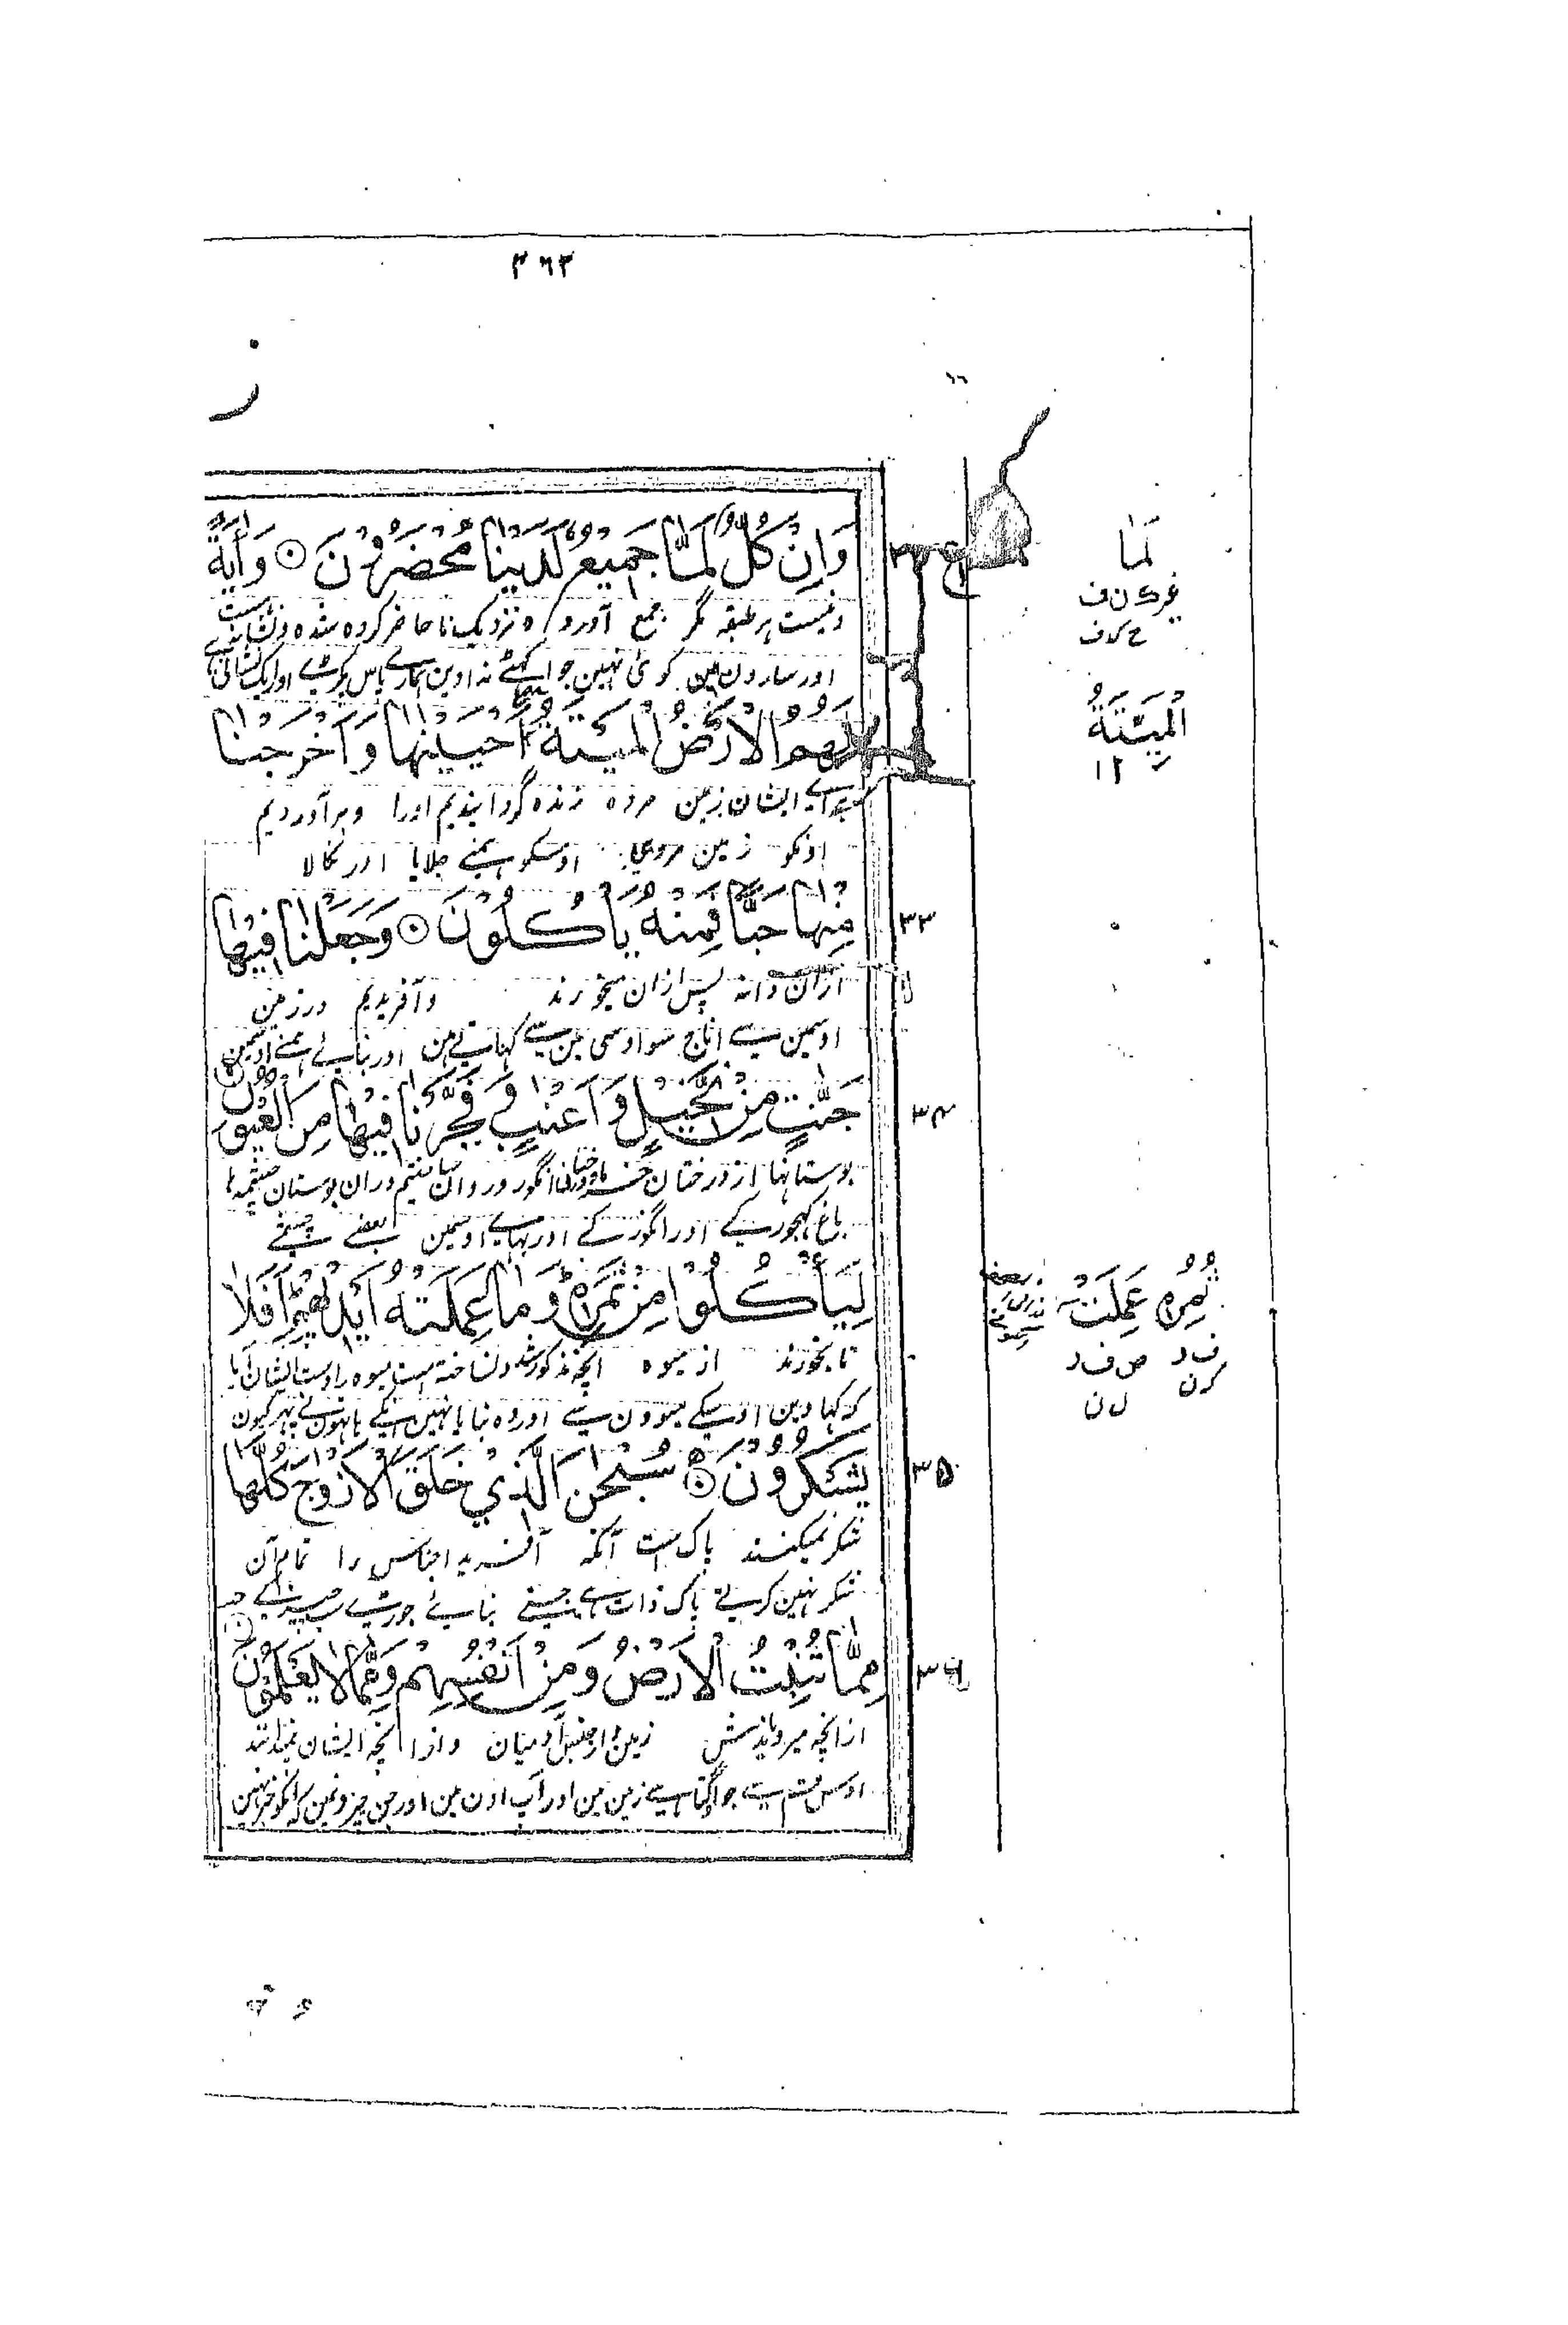 ۳۶۳
ز
وَاِنْ كُلٌّ لَّمَّا جَمِيْعٌ لَّدَيْنَا مُحْضَرُوْنَ ۞ وَاٰيَةٌ
و نیست ہر طبقہ مگر جمع آوردہ نزدیک ما حاضر کردہ شدہ و نشانہ است
اور سارون مین کوئی نہین جو اکہٹے نہ آوین ہمارے پاس پکڑے اور ایک نشانی
لَّهُمُ الْاَرْضُ الْمَيْتَةُ اَحْيَيْنٰهَا وَاَخْرَجْنَا
براے ایشان زمین مردہ زندہ گردانیدیم اورا و بر آوردیم
اونکو زمین مردی اوسکو ہمنے جلایا اور نکالا
مِنْهَا حَبًّا فَمِنْهُ يَاْكُلُوْنَ ۞ وَجَعَلْنَا فِيْهَا
ازان دانہ پس ازان میخورند و آفریدیم در زمین
اوسمین سے اناج سو اوسی مین سے کہاتے ہین اور بنائے ہمنے اوسمین
جَنّٰتٍ مِّنْ نَّخِيْلٍ وَّاَعْنٰبٍ وَّفَجَّرْنَا فِيْهَا مِنَ الْعُيُوْنِ
بوستانہا از درختان خرما و درختان انگور و روان ساختیم دران بوستان چشمہا
باغ کہجور کے اور انگور کے اور بہائے اوسمین بعضے چشمے
لِيَاْكُلُوْا مِنْ ثَمَرِهٖ وَمَا عَمِلَتْهُ اَيْدِيْهِمْ اَفَلَا
تا بخورند از میوہ انچہ مذکور شد و نساختہ است میوہ را دست ایشان آیا
کہ کہاوین اوسکے میوون سے اور وہ بنایا نہین انکے ہاتہون نے پہر کیون
يَشْكُرُوْنَ ۞ سُبْحٰنَ الَّذِيْ خَلَقَ الْاَزْوٰجَ كُلَّهَا
شکر نمیکنند پاک است آنکہ آفرید اجناس را تمام آن
شکر نہین کرتے پاک ذات ہے جسنے بنائے جوڑے سب چیز کے
مِمَّا تُنْبِتُ الْاَرْضُ وَمِنْ اَنْفُسِهِمْ وَمِمَّا لَا يَعْلَمُوْنَ
ازانچہ میرویاندش زمین و از جنس آدمیان و ازانچہ ایشان نمیدانند
اوس قسم سے جو اگتا ہے زمین مین اور آپ اون مین اور جن چیزونمین کہ انکو خبر نہین
۳۳
۳۴
۳۵
۳۶
لَمَا
الْمَيِّتَةُ
ثُمُرِهٖ عَمِلَتْ